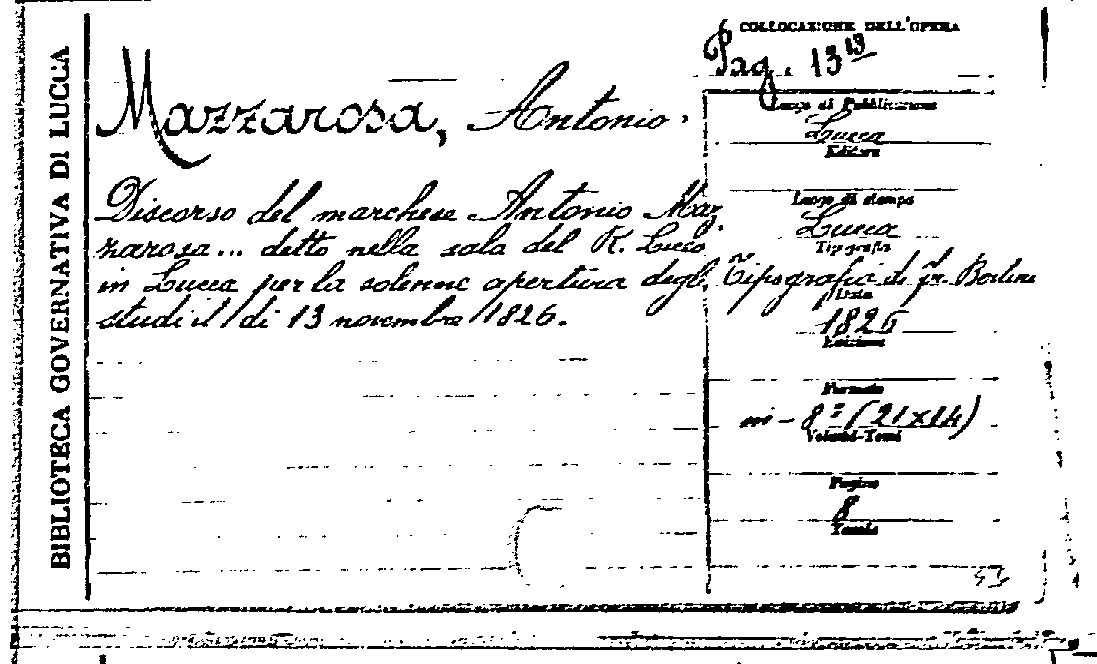 BIBLIOTECA GOVERNATIVA DI LUCCA
COLLOCAZIONE DELL'OPERA
Pag. 13 13
Mazzarosa, Antonio.
Discorso del marchese Antonio Maz
zarosa... detto nella sala del R. Liceo
in Lucca per la solenne apertura degli
studi il dì 13 novembre 1826.
Luogo di Pubblicazione
Lucca
Editore
Luogo di stampa
Lucca
Tipografia
Tipografia di fr. Bertini
Data
1826
Edizione
Formato
in-8º (21x14)
Volumi-Tomi
Pagine
8
Tavole